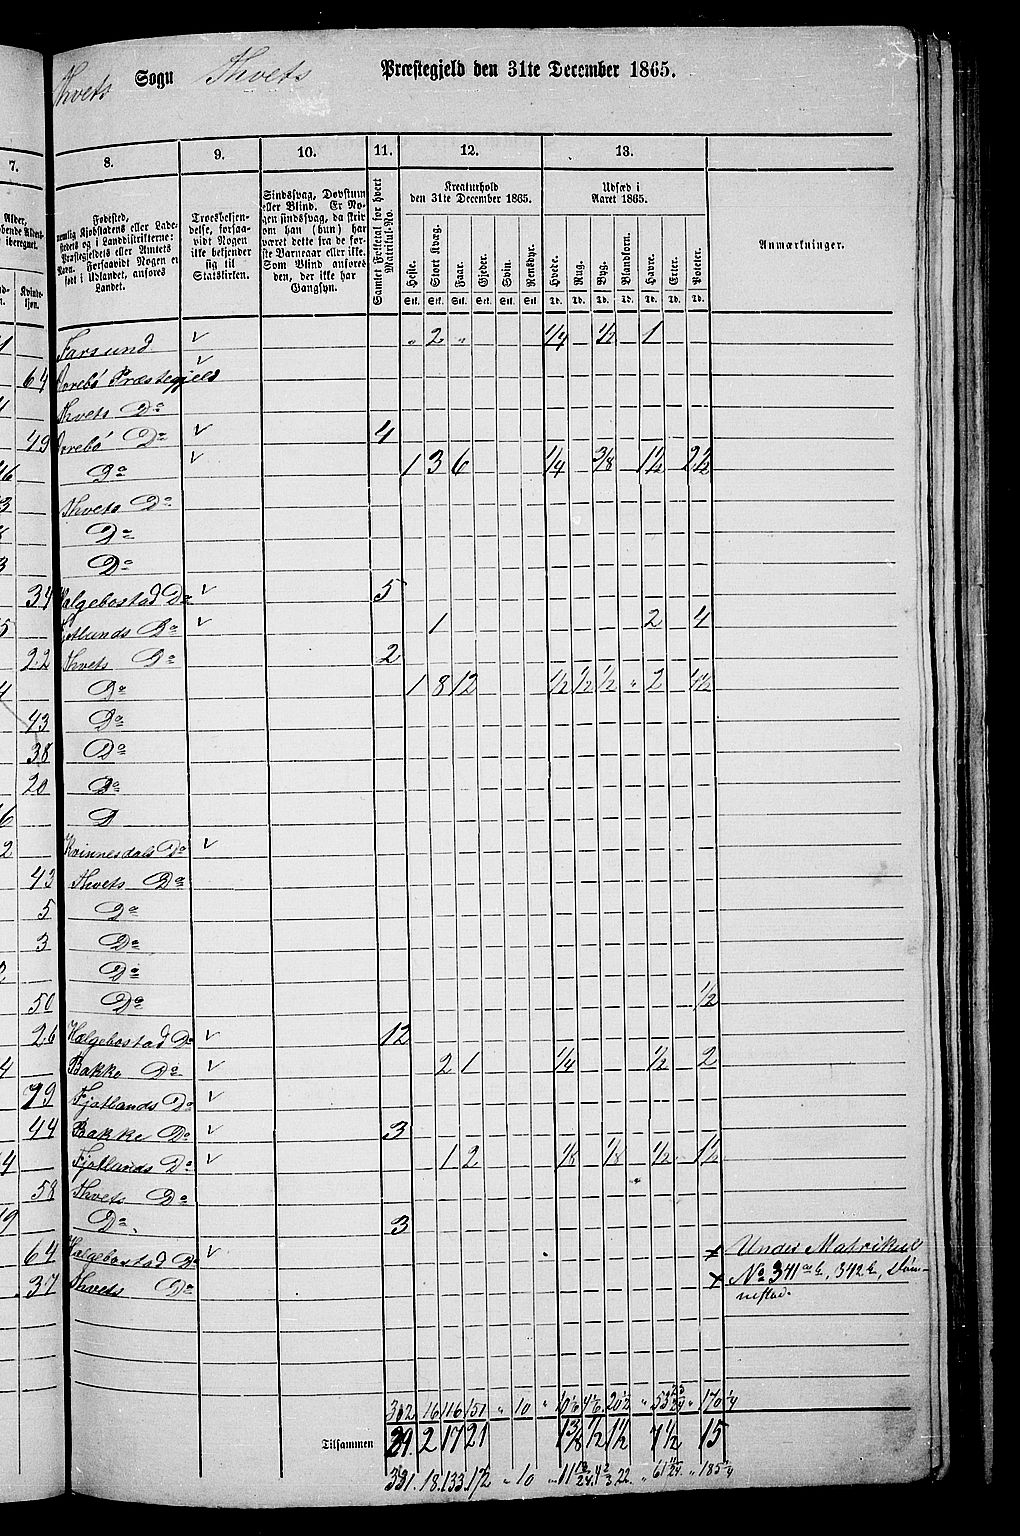 Thvets Sogn Thvets Præstegjeld den 31te December 1865.
7. 8. 9. 10. 11. 12. 13.
Fødested,
nemlig Kjøbstadens eller Ladestedets og i Landdistrikterne: Præstegjeldets eller Amtets Navn. Forsaavidt Nogen er født i Udlandet, anføres Landet.
Troesbekjendelse, forsaavidt Nogen ikke bekjender sig til Statskirken.
Sindssvag, Døvstum eller Blind. Er Nogen sindssvag, da skrives om han (hun) har været dette fra de første Barneaar eller ikke. Som Blind anføres den, der ikke har Gangsyn.
Samlet Folketal for hvert Matrikul-No.
Kreaturhold
den 31te December 1865.
Udsæd i
Aaret 1865.
Anmærkninger.
Kvindekjøn.
Heste. Stort Kvæg. Faar. Gjeder. Svin. Rensdyr. Hvede. Rug. Byg. Blandkorn. Havre. Erter. Poteter.
Stk. Stk. Stk. Stk. Stk. Stk. Td. Td. Td. Td. Td. Td. Td.
Farsund √ „ 2 „ 1/4 1/2 1
64 Øvrebø Præstegjeld √
Thvets Do
49 Øvrebø Do √ 4
Do √ 1 3 6 1/4 3/8 1 1/2 2 1/2
Thvets Do
Do
Do
34 Hælgebostad Do √ 5
Fjotlunds Do √ 1 2 4
22 Thvets Do 2
Do 1 8 12 1/2 1/2 1/2 „ 2 4 1/2
43 Do
38 Do
20 Do
D
Kvinnesdals Do √
43 Thvets Do
5 Do
3 Do
Do
50 Do 1/2
26 Hælgebostad Do √ 12
Bakke Do √ 2 1 1/4 1/2 2
79 Fjotlands Do √
44 Bakke Do √ 3
Fjotlunds Do √ 1 2 1/8 1/8 1/2 1 1/2
58 Thvets Do
Do. 3
64 Hælgebostad Do √ x Under Matrikul
37 Thvets Do x No 341 a b, 342 b, Døm-
nestad.
302 16 116 151 „ 10 „ 10 1/6 4 1/6 20 1/2 „ 53 „ 170 1/4
Tilsammen 29. 2 17 21 1 3/8 1/2 1 1/2 7 1/2 15
331. 18. 133. 172 „ 10 „ 11 13/24 4 2/3 22. „ 61 „ 185 1/4